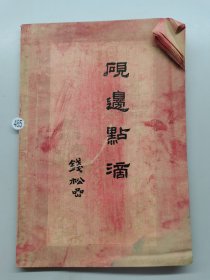 硯邊點滴
錢松喦
485